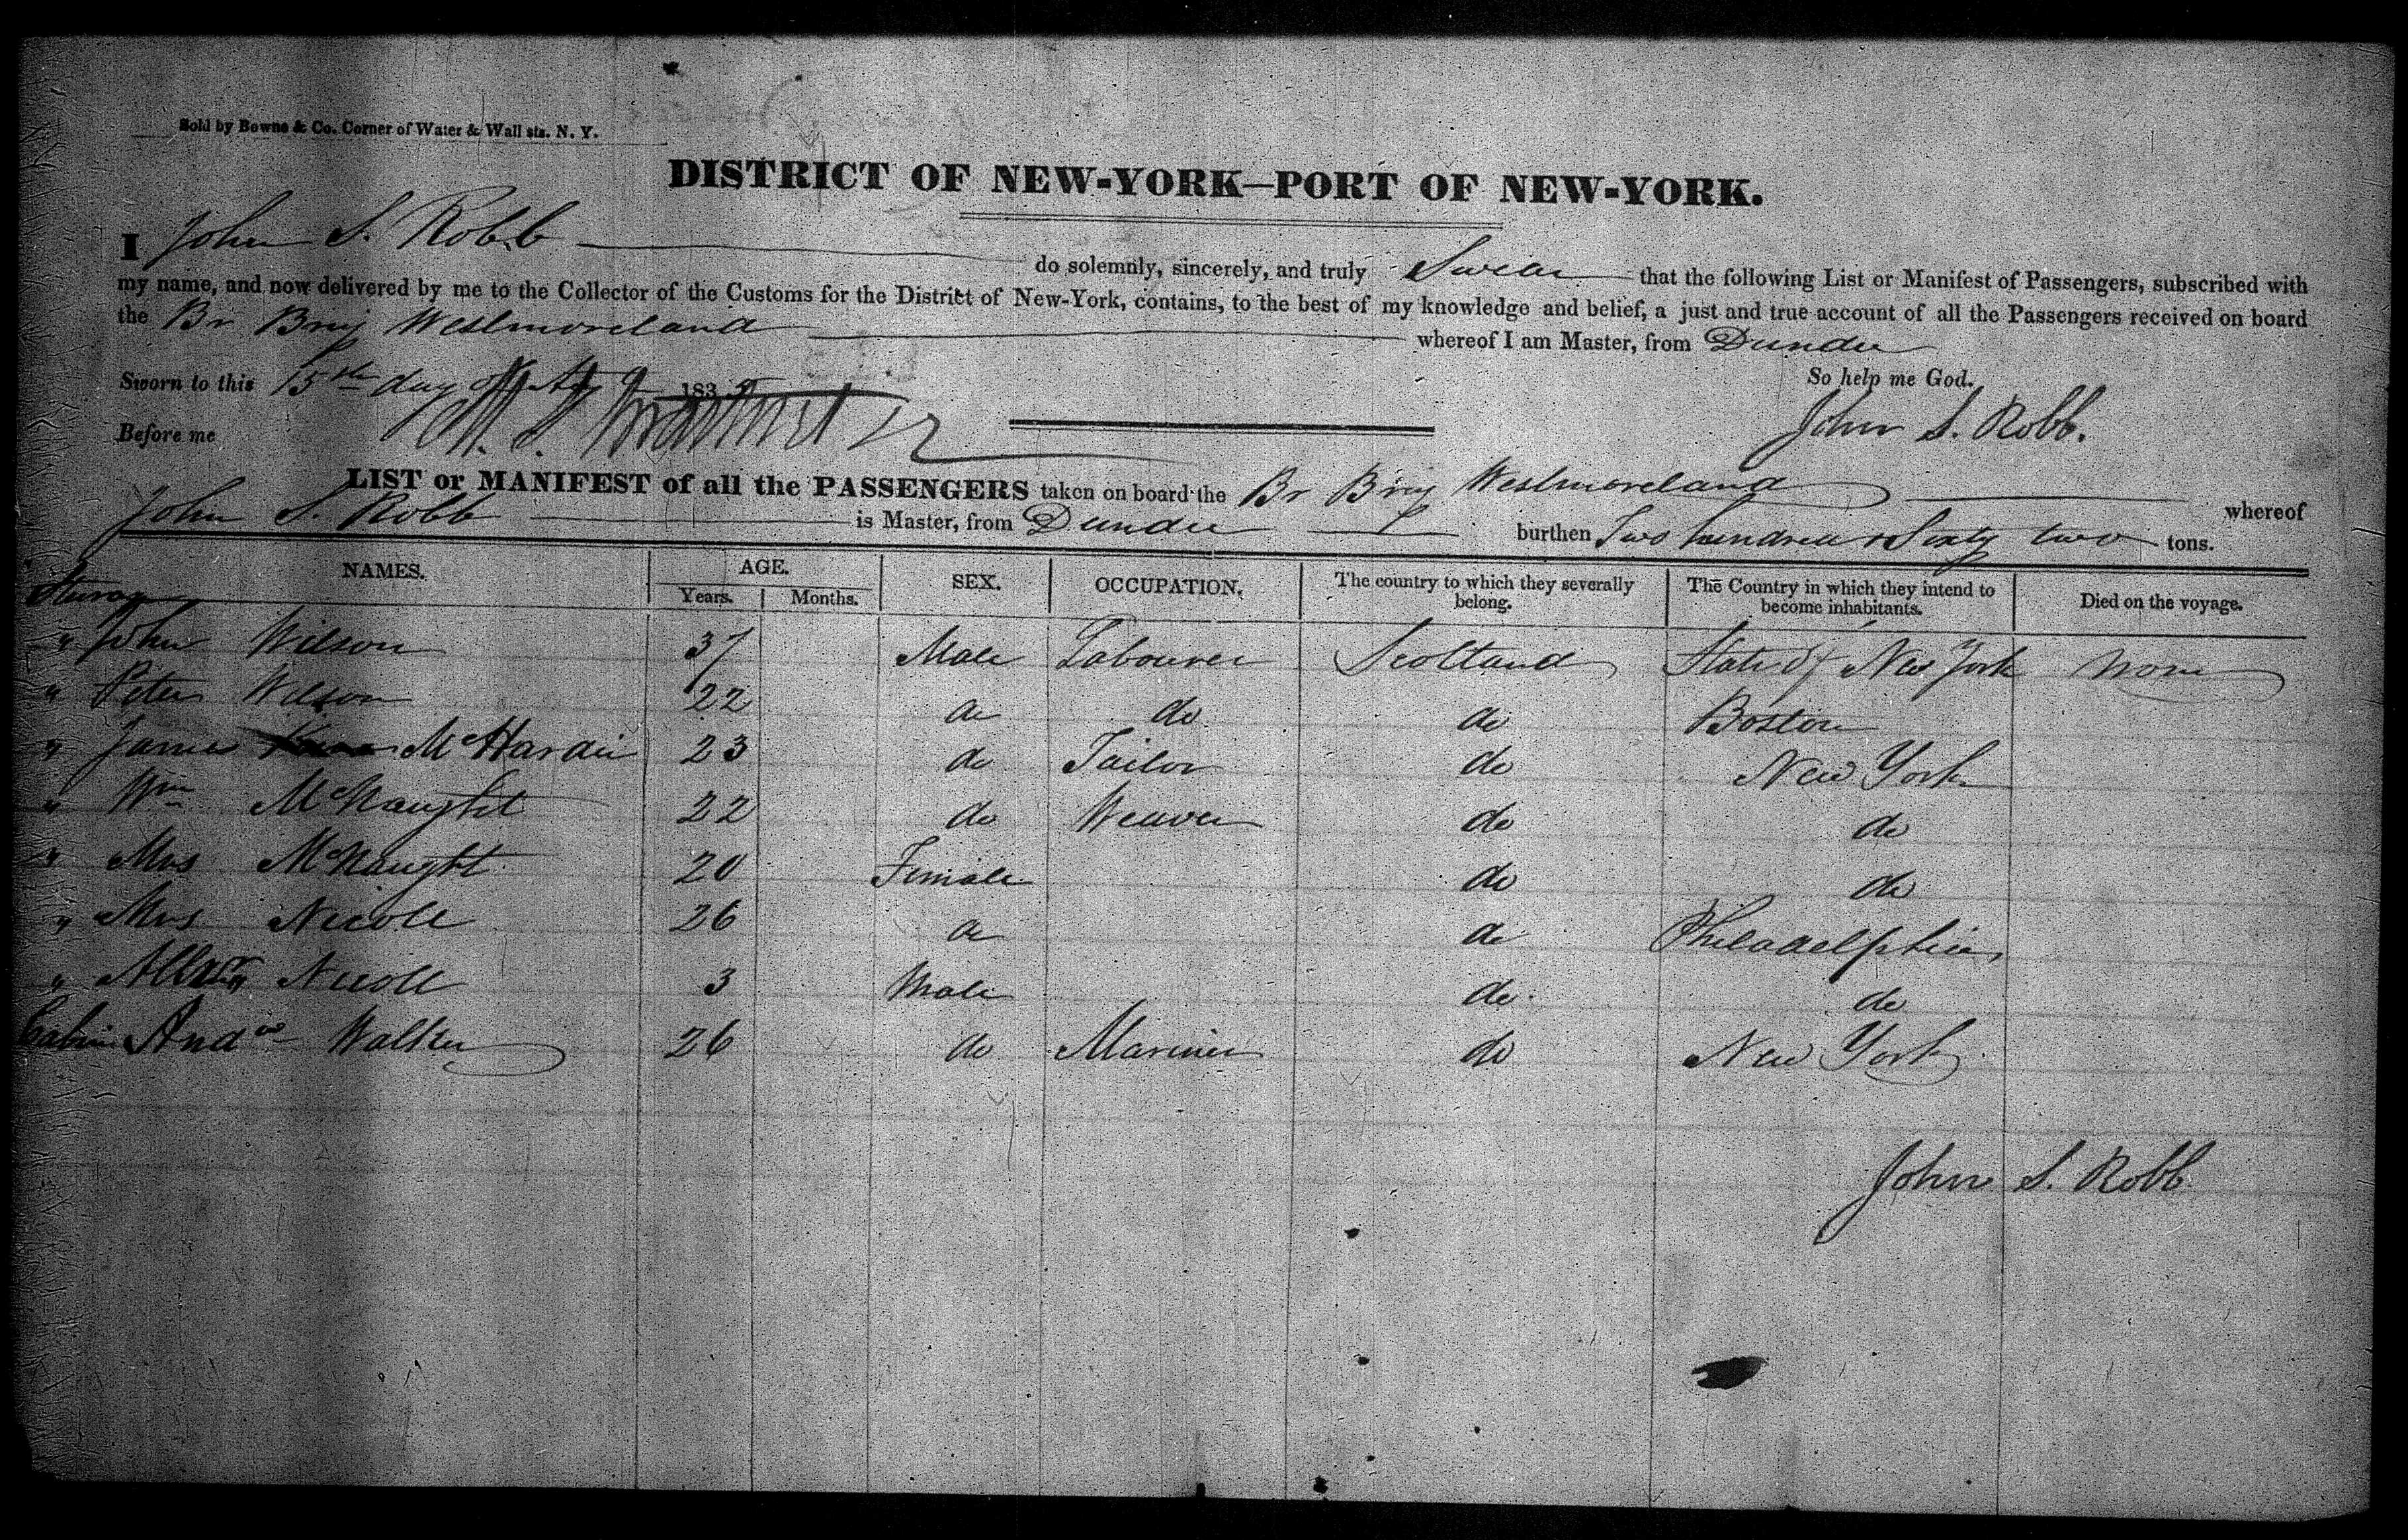 Sold by Bowne & Co. Corner of Water & Wall sts. N. Y.
DISTRICT OF NEW-YORK—PORT OF NEW-YORK.
I John S. Robb do solemnly, sincerely, and truly Swear that the following List or Manifest of Passengers, subscribed with
my name, and now delivered by me to the Collector of the Customs for the District of New-York, contains, to the best of my knowledge and belief, a just and true account of all the Passengers received on board
the Br Brig Westmoreland whereof I am Master, from Dundee
Sworn to this 15th day of 183 So help me God.
Before me John S. Robb.
LIST or MANIFEST of all the PASSENGERS taken on board the Br Brig Westmoreland whereof
John S. Robb is Master, from Dundee burthen Two hundred & Sixty two tons.
NAMES. AGE. Years. Months. SEX. OCCUPATION. The country to which they severally belong. The Country in which they intend to become inhabitants. Died on the voyage.
Sturage
" John Wilson 37 Male Labourer Scotland State of New York None
" Peter Wilson 22 do do do Boston
" James McHardie 23 do Tailor do New York
" Wm McNaught 22 do Weaver do do
" Mrs McNaught 20 Female do do
" Mrs Nicoll 26 do do Philadelphia
" Nicoll 3 Male do do
Cabin Andw Walker 26 do Mariner do New York
John S. Robb